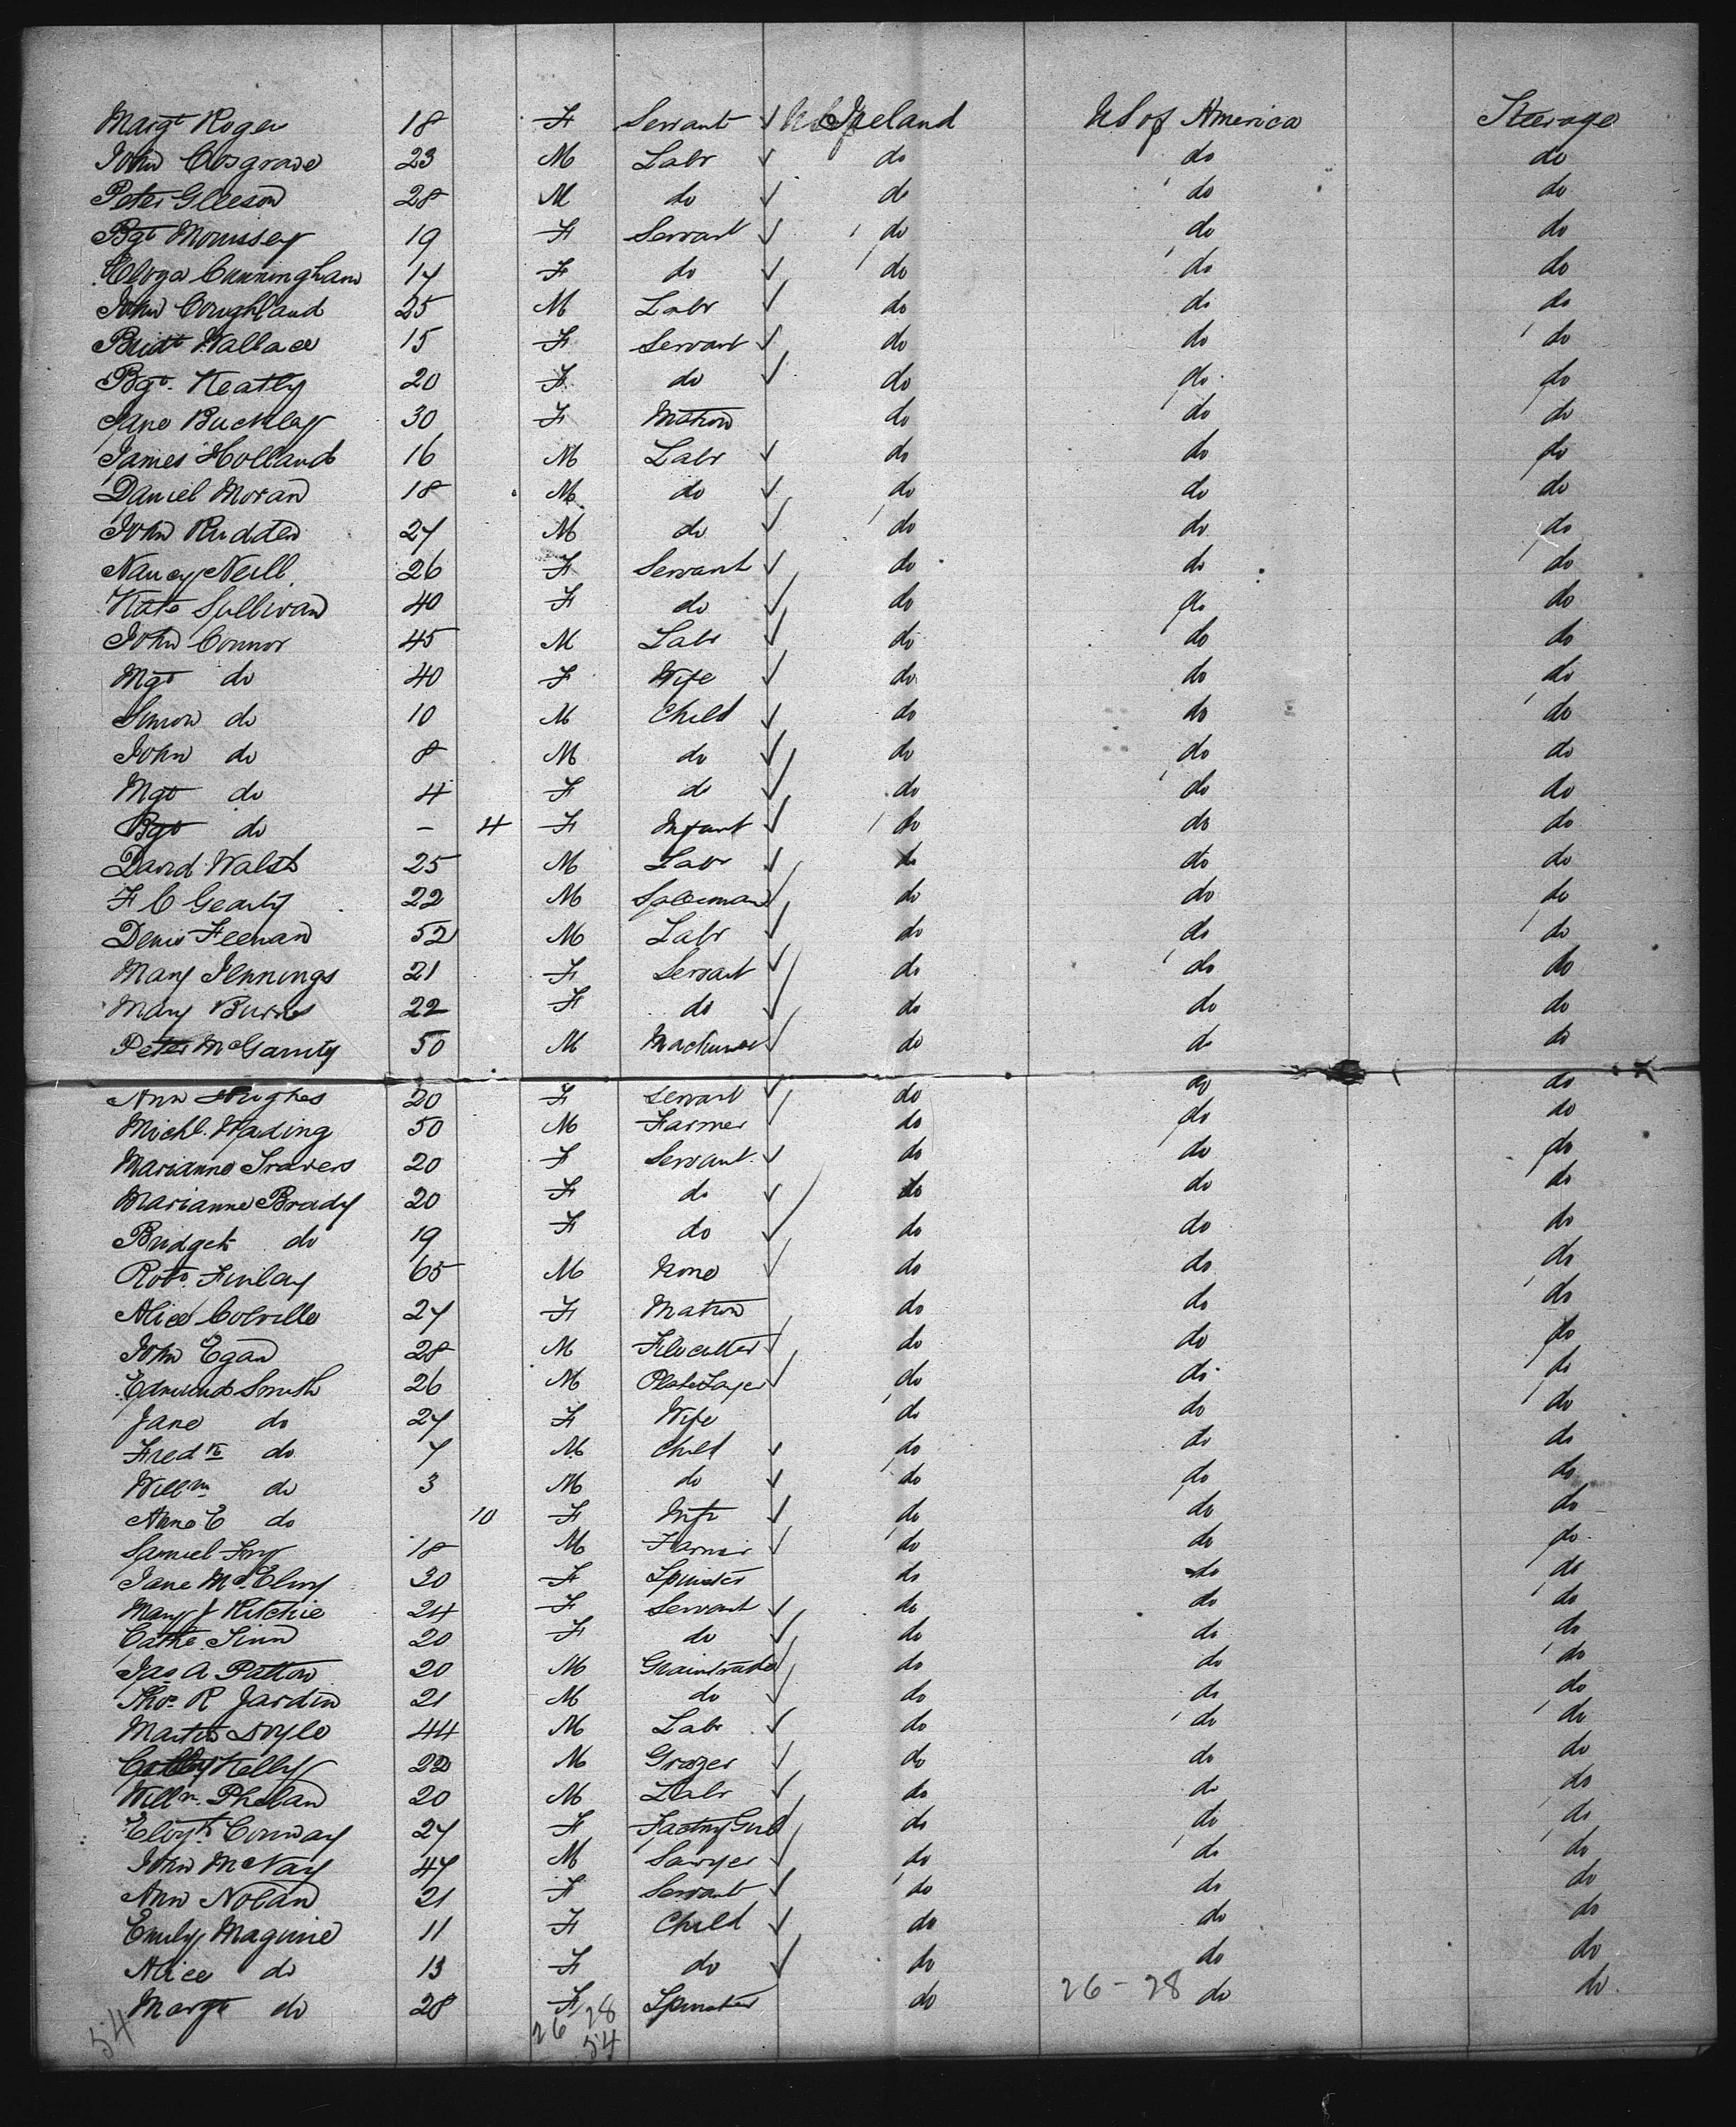 Margt Roger 18 F Servant ✓ Ireland US of America Steerage
John Cosgrave 23 M Labr ✓ do do do
Peter Gleeson 28 M do ✓ do do do
Bgt Morrissey 19 F Servant ✓ do do do
Cunningham 17 F do ✓ do do do
John Coughland 25 M Labr ✓ do do do
Bridt Wallace 15 F Servant ✓ do do do
Bgt. Keatly 20 F do ✓ do do do
Jane Buckley 30 F Matron do do do
James Holland 16 M Labr ✓ do do do
Daniel Moran 18 M do ✓ do do do
John Rudden 27 M do ✓ do do do
Nancy Neill 26 F Servant ✓ do do do
Kate Sullivan 40 F do ✓ do do do
John Connor 45 M Labr ✓ do do do
Mgt do 40 F Wife ✓ do do do
Simon do 10 M Child ✓ do do do
John do 8 M do ✓ do do do
Mgt do 4 F do ✓ do do do
Bgt do - 4 F Infant ✓ do do do
David Walsh 25 M Labr ✓ do do do
F C Gearty 22 M Salesman ✓ do do do
Denis Feenan 52 M Labr ✓ do do do
Mary Jennings 21 F Servant ✓ do do do
Mary Burns 22 F do ✓ do do do
Peter McGarrity 50 M ✓ do do do
Ann Hughes 20 F Servant ✓ do do do
Michl. Wading 50 M Farmer ✓ do do do
Marianne Travers 20 F Servant ✓ do do do
Marianne Brady 20 F do ✓ do do do
Bridget do 19 F do ✓ do do do
Robt. Finlay 65 M None ✓ do do do
Alice Colville 27 F Matron do do do
John Egan 28 M Filecutter ✓ do do do
Edmund Smith 26 M PlateLayer ✓ do do do
Jane do 27 F Wife do do do
Fredk do 7 M Child ✓ do do do
Willm do 3 M do ✓ do do do
Anne E do 10 F Inft ✓ do do do
Samuel 18 M Farmer ✓ do do do
Jane McElroy 20 F Spinster do do do
Mary J Ritchie 24 F Servant ✓ do do do
Cathe. 20 F do ✓ do do do
Jas A Patton 20 M ✓ do do do
Thos. R Jardin 21 M do ✓ do do do
Martin Doyle 44 M Labr ✓ do do do
Kelly M Grazer ✓ do do do
Willm. Phelan 20 M Labr ✓ do do do
Conway 27 F Factory Girl ✓ do do do
John McVay 47 M Sawyer ✓ do do do
Ann Nolan 21 F Servant ✓ do do do
Emily Maguire 11 F Child ✓ do do do
Alice do 13 F do ✓ do do do
Margt do 28 F Spinster do 26 - 28 do do
54 26 28
54